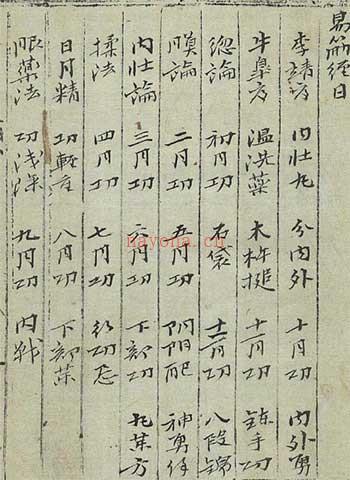 易筋經目
李靖序 內壯丸 分內外 十月功 內外勇
牛皐序 溫洗藥 木杵槌 十一月功 鍊手功
總論 初月功 石袋 十二月功 八段錦
膜論 二月功 五月功 阴阳配 神勇
內壯論 三月功 六月功 下部功 丸藥方
揉法 四月功 七月功 行功忌
日月精 功輕重 八月功 下部藥
服藥法 功淺深 九月功 內戰
nayona.cn